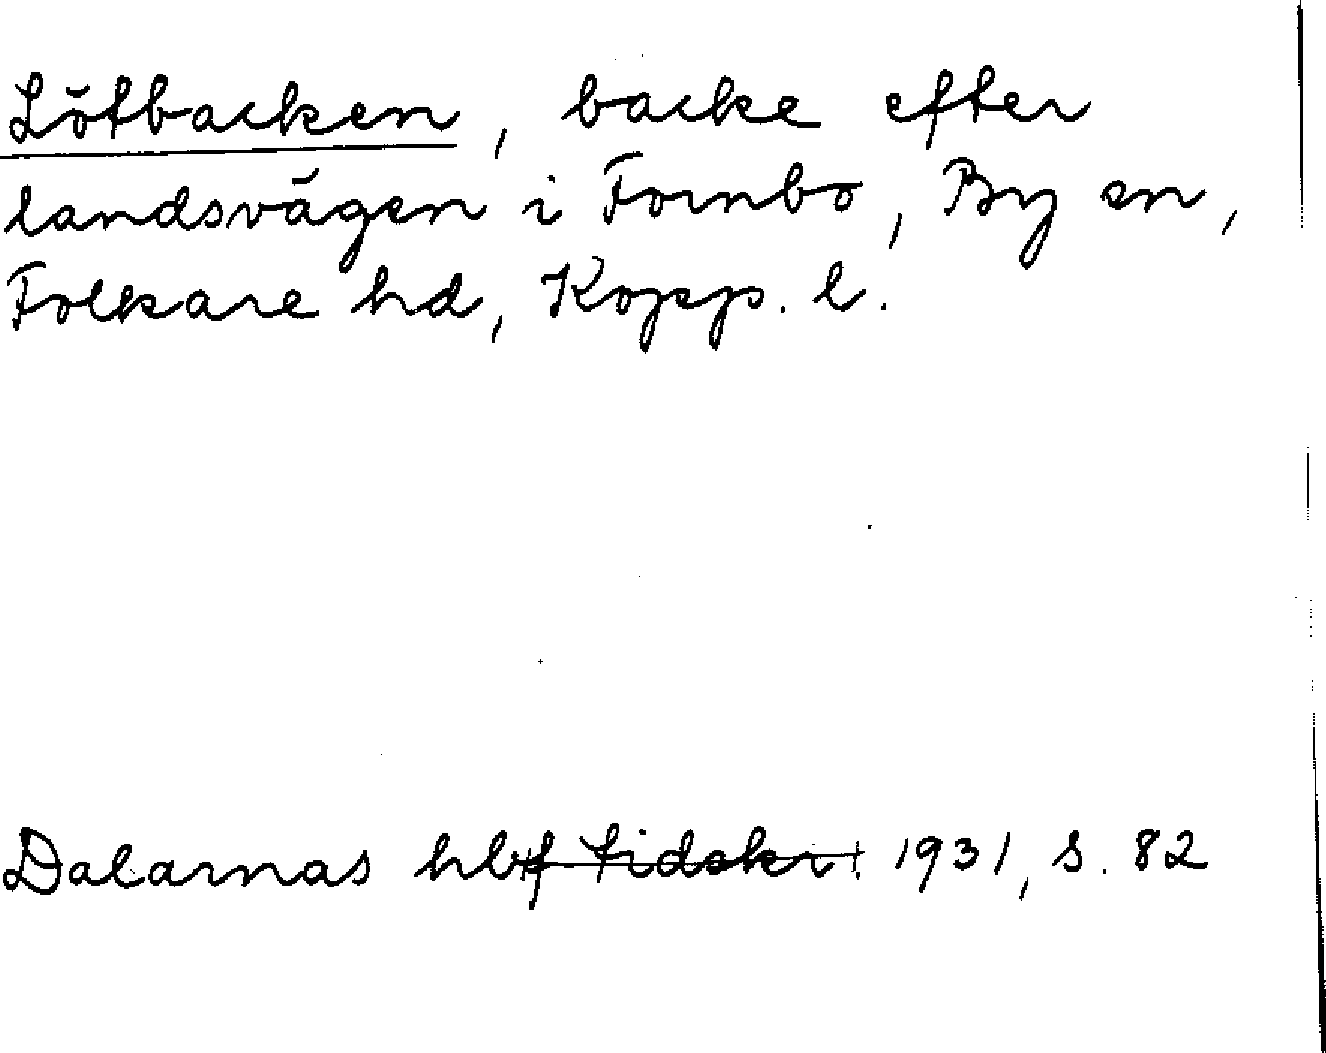 Lötbacken, backe efter
landsvägen i Fornbo, By sn,
Folkare hd, Kopp. l.
Dalarnas hbf tidskr. 1931, s. 82